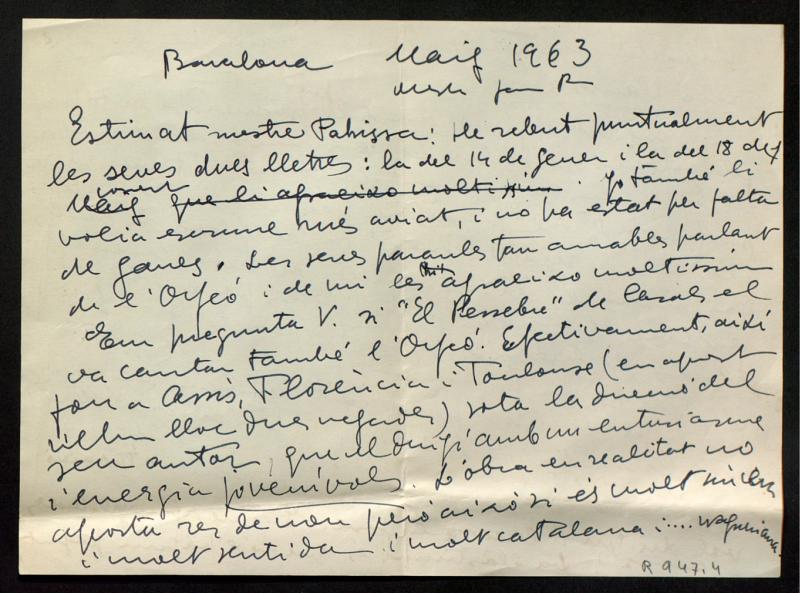 Barcelona Maig 1963
Estimat mestre Pahissa: He rebut puntualment
les seves dues lletres: la del 14 de gener i la del 18 de
Maig que li agraeixo moltíssim. Jo també li
volia escriure més aviat, i no ha estat per falta
de ganes. Les seves paraules tan amables parlant
de l'Orfeó i de mi les agraeixo moltissim
Em pregunta V. si "El Pessebre" de Casals el
va cantar també l'Orfeó. Efectivament, així
fou a Assis, Florència i Toulouse (en aquest
lloc dues vegades) sota la direcció del
seu autor, que el dirigí amb un entusiasme
i energia jovenívols. L'obra en realitat no
aporta res de nou però això sí és molt
i molt sentida i molt catalana i.... wagneriana.
R 947.4